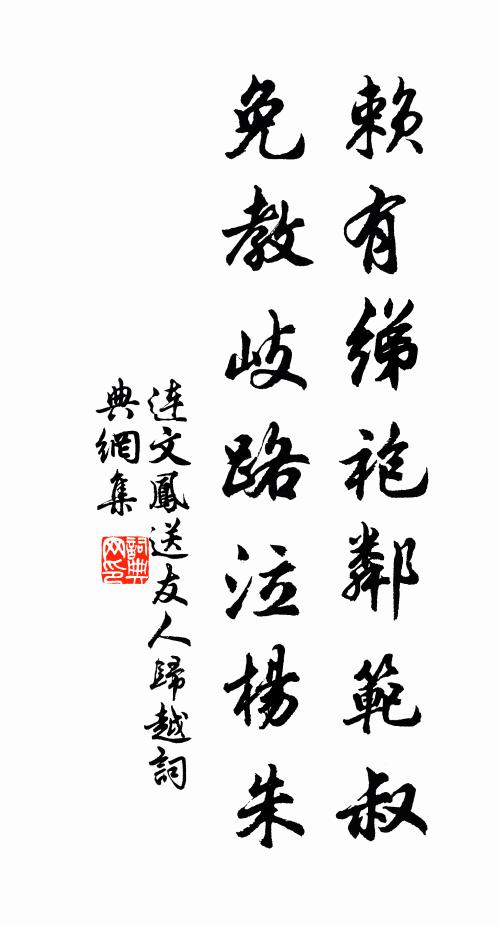 賴有綈袍鄰範叔
免教歧路泣楊朱
連文鳳送友人歸越詞
典網集
詞典網印